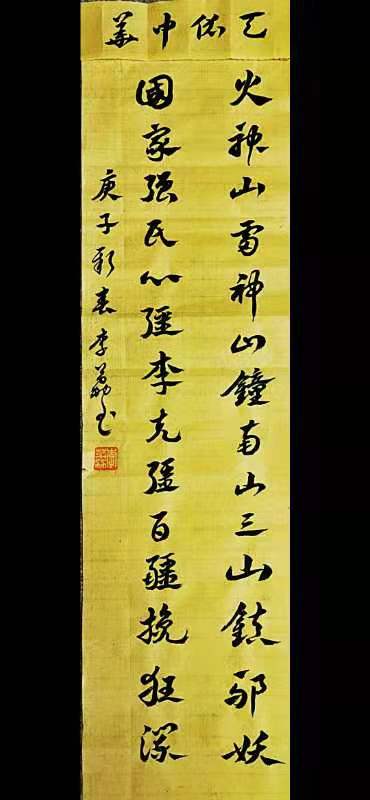 天佑中華
火神山雷神山鐘南山三山鎮邪妖
國家强民心彊李克彊百疆挽狂瀾
庚子新春李